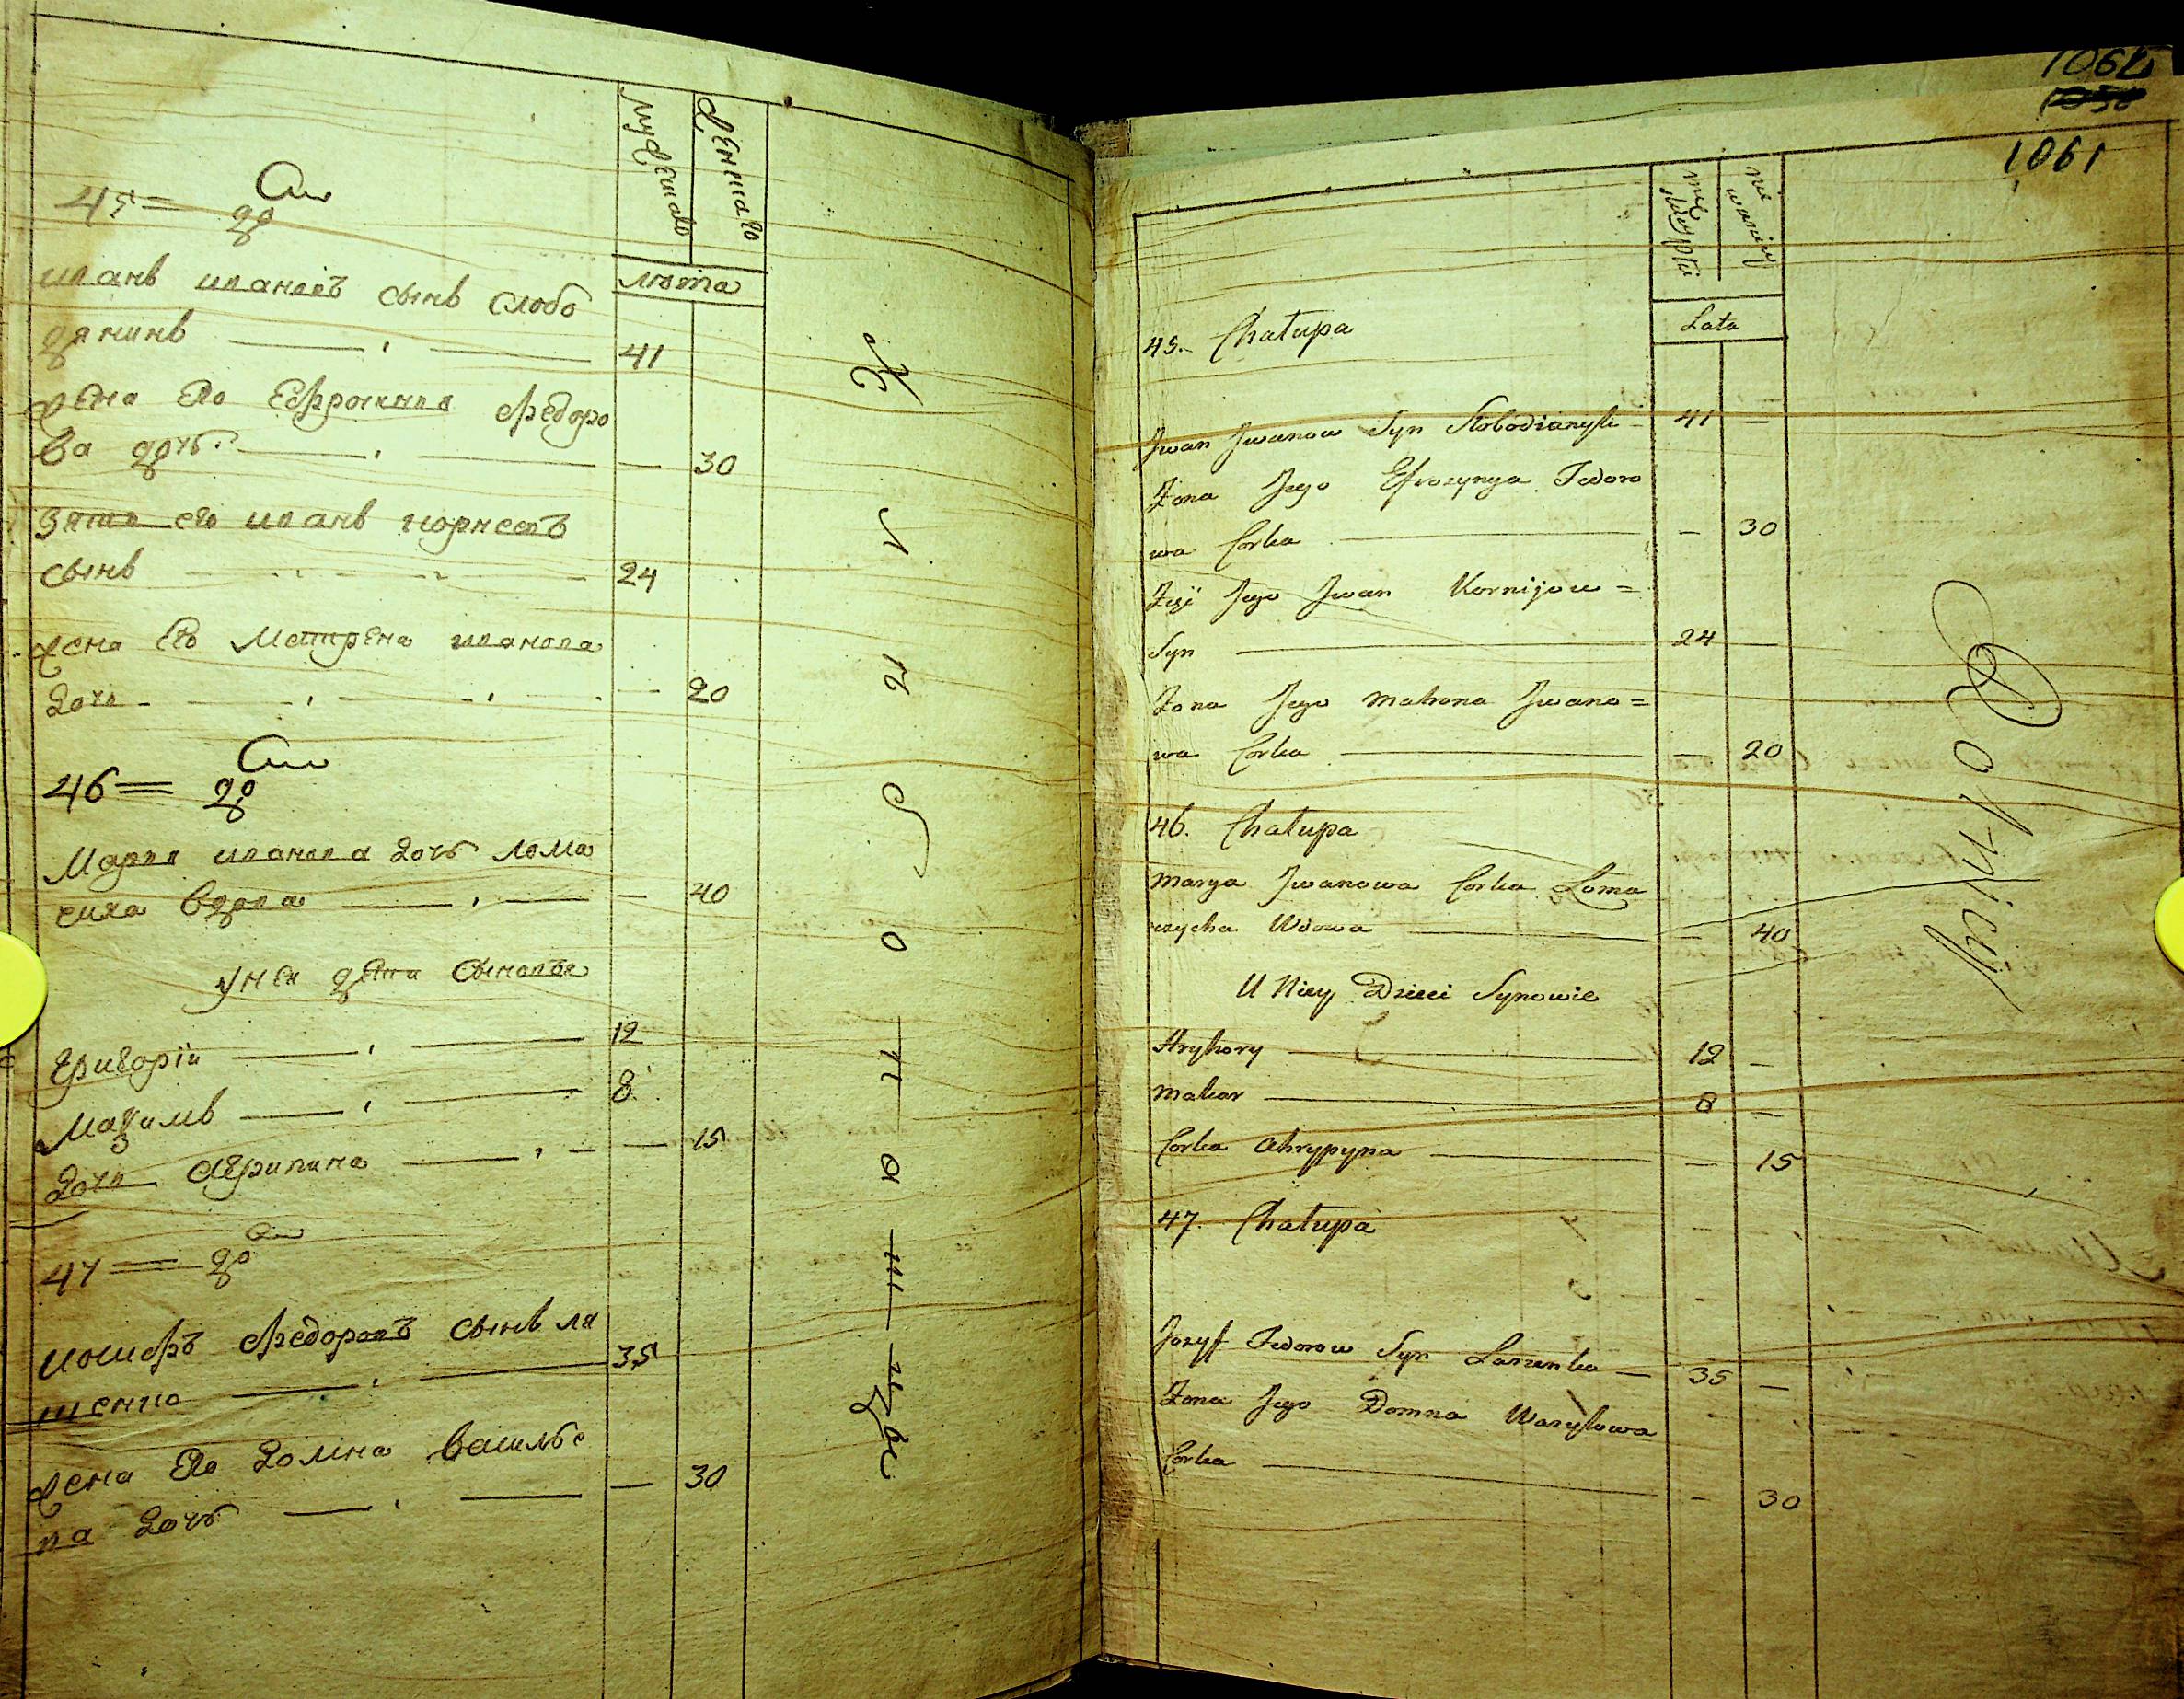 мужеска
женска го
лѣта
45 = дво
иванъ ивановъ сынъ слобо
дянинъ 41
жена его Ефросиния федоро
ва дочь. — 30
зять его иванъ корнеевъ
сынъ 24
жена его Мотрена иванова
дочь — 20
46 = дво
Мария иванова дочь лома
чиха вдова — 40
у неи дети сыновья
григории 12
Мак симъ 8
дочь Агрипина — 15
47 = дво
иосифъ федоровъ сынъ ля
шенко 35
жена его домна василье
ва дочь — 30
Хлѣбопашцы
1061
mę
skiey płci
nie
wasciey
Lata
45. Chałupa
Jwan Jwanow Syn Słobodianyk 41 —
Żona Jego Efrozynya Fedoro
wa Corka — 30
Zięć Jego Jwan Kornijow =
Syn 24 —
Żona Jego Matrona Jwano =
wa Corka — 20
46. Chałupa
Marya Jwanowa Corka Łoma
czycha Wdowa — 40
U Niey Dzieci Synowie
Hryhory 12 —
Makar 8 —
Corka Ahrypyna — 15
47. Chałupa
Jozyf Fedorow Syn Laszenko 35 —
Żona Jego Domna Wasylowa
Corka — 30
Rolnicy